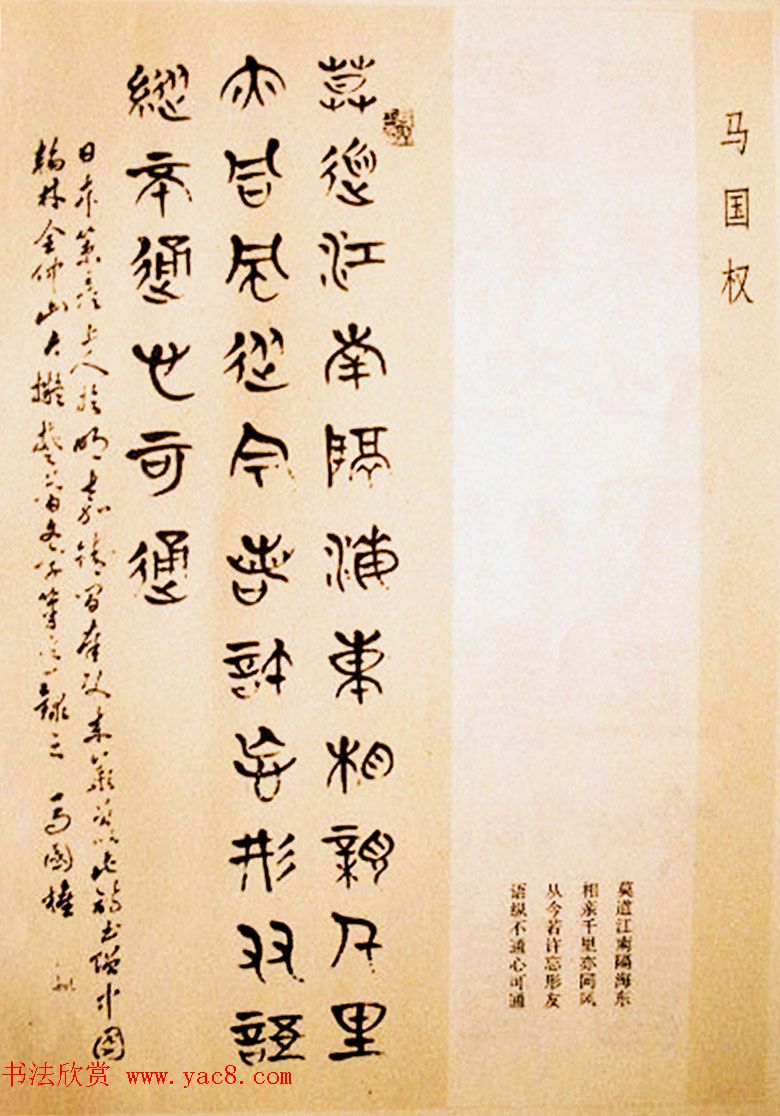 马国权
莫道江南隔海东
相亲千里亦同风
从今若许忘形友
语纵不通心可通
莫道江南隔海東相親千里
亦同風從今若許忘形友語
縱不通心可通
日本策彦上人於明嘉靖間奉使来華曾以此詩書贈中國
翰林金仲山 錄之 馬國權
书法欣赏 www.yac8.com